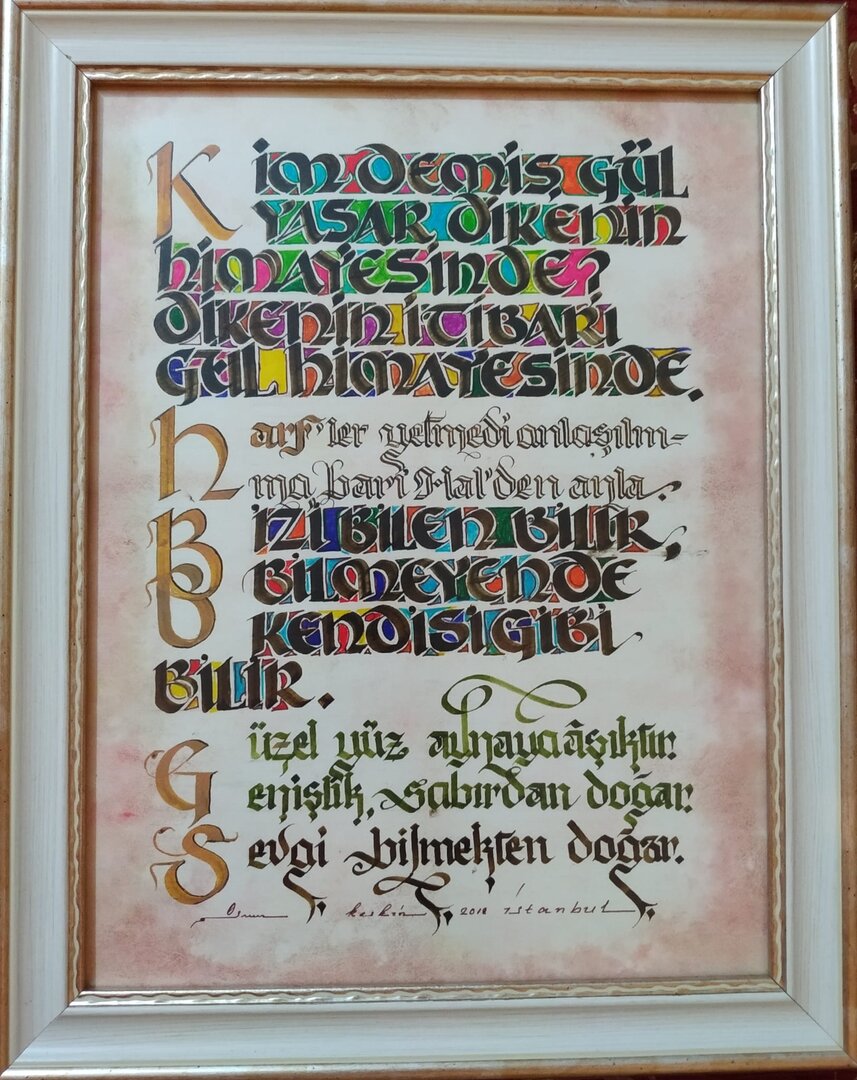 Kim DEMİŞ GÜL
YAŞAR DİKENİN
HİMAYESİNDE?
DİKENİN İTİBARI
GÜL HİMAYESİNDE.
Harf'ler yetmedi anlaşılm-
ma bari Hal'den anla.
BİZİ BİLEN BİLİR,
BİLMEYENDE
KENDİSİ GİBİ
BİLİR.
Güzel yüz aynaya âşıktır.
Genişlik, sabırdan doğar.
Sevgi bilmekten doğar.
keskin 2018 istanbul